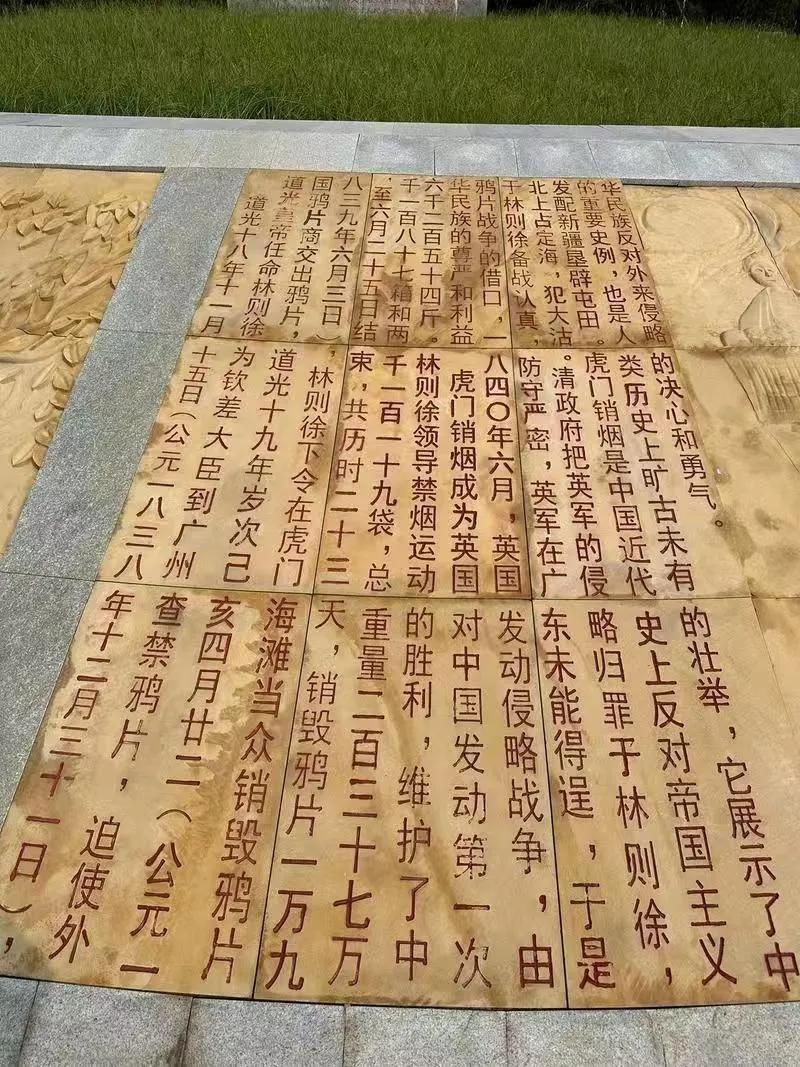 道光十八年十一月十五日(公元一八三八年十二月三十一日),
道光皇帝任命林则徐为钦差大臣到广州查禁鸦片,迫使外
国鸦片商交出鸦片,道光十九年岁次己亥四月廿二(公元一
八三九年六月三日),林则徐下令在虎门海滩当众销毁鸦片
,至六月二十五日结束,共历时二十三天,销毁鸦片一万九
千一百八十七箱和两千一百一十九袋,总重量二百三十七万
六千二百五十四斤。林则徐领导禁烟运动的胜利,维护了中
华民族的尊严和利益 虎门销烟成为英国对中国发动第一次
鸦片战争的借口,一八四〇年六月,英国发动侵略战争,由
于林则徐备战认真,防守严密,英军在广东未能得逞,于是
北上占定海,犯大沽。清政府把英军的侵略归罪于林则徐,
发配新疆垦辟屯田。虎门销烟是中国近代史上反对帝国主义
的重要史例,也是人类历史上旷古未有的壮举,它展示了中
华民族反对外来侵略的决心和勇气。